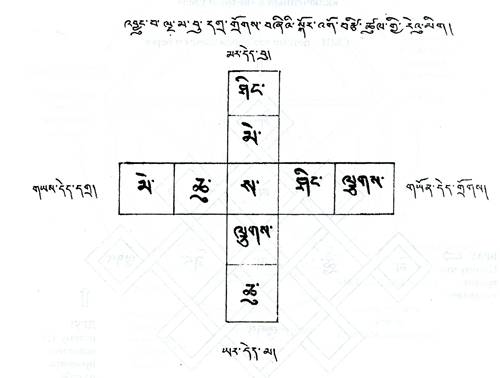 འབྱུང་བ་ལྔ་མ་བུ་དགྲ་གྲོགས་བཞིའི་སྐོར་འགོ་བརྩི་ཚུལ་གྱི་རེའུ་མིག།
མར་དེད་བུ།
ཤིང་
མེ་
གཡས་དེད་དགྲ། མེ་ ཆུ་ ས་ ཤིང་ ལྕགས་ གཡོན་དེད་གྲོགས།
ལྕགས་
ཆུ་
ཡར་དེད་མ།